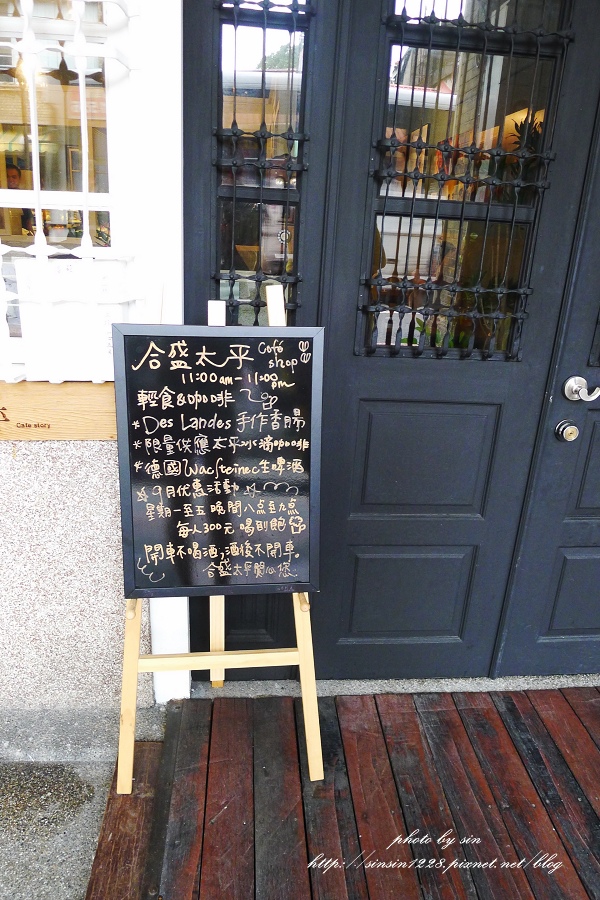 合盛太平 Café shop
11:00am-11:00pm
輕食&咖啡
*Des Landes 手作香腸
*限量供應太平冰滴咖啡
*德國Warsteiner生啤酒
☆9月优惠活動☆
星期一至五晚間八点至九点
每人300元 喝到飽
開車不喝酒,酒後不開車。
合盛太平關心您
Cafe story
photo by sin
http://sinsin1228.pixnet.net/blog